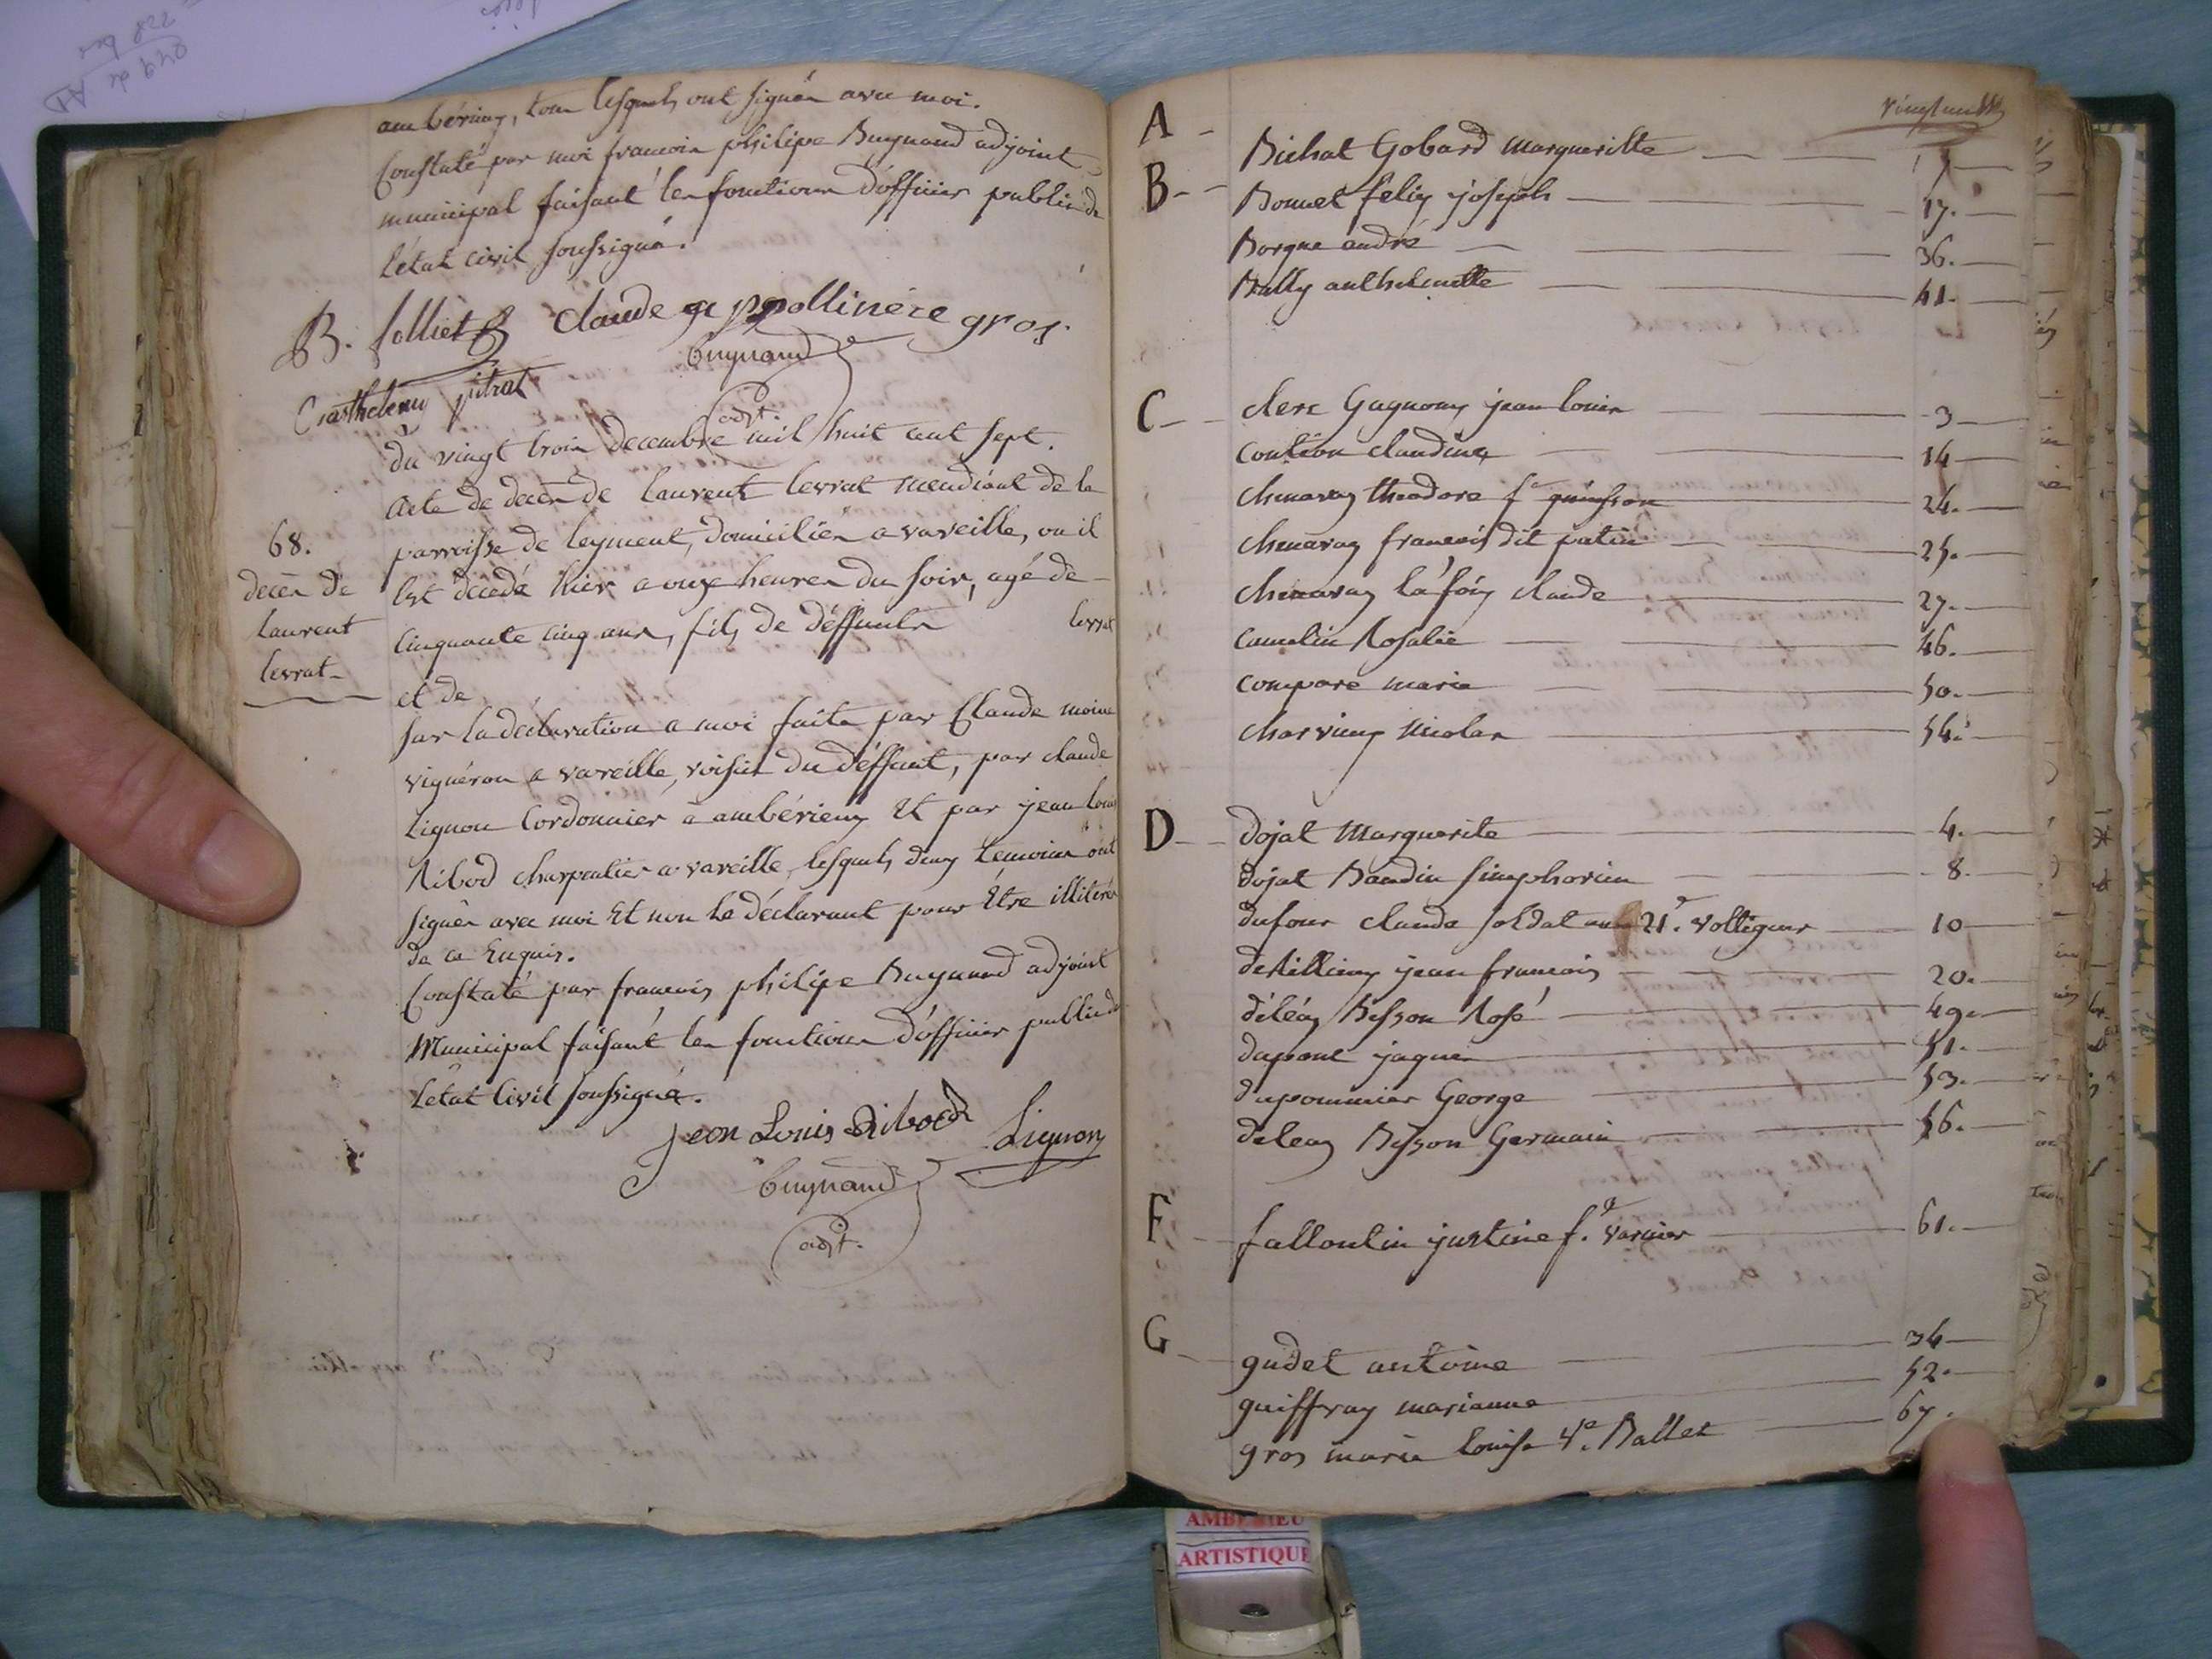 ambérieux, tous lesquels ont signés avec moi.
Constaté par moi francois philipe Buynand adjoint
municipal faisant les fonctions d'officier public de
l'état civil soussigné.
B. Jolliet Claude appollinere gros
buynand
Barthelemy pitrat
adjt.
du vingt trois decembre mil huit cent sept.
acte de decès de laurent levrat mendiant de la
parroisse de leyment, domiciliés a vareille, ou il
68.
decès de
laurent
levrat
Est décédé hier a onze heures du soir, agé de
cinquante cinq ans, fils de déffunts levrat
et de
sur la déclaration a moi faite par Claude moine
vignéron a vareille, voisin du déffunt, par claude
Lignon Cordonnier a ambérieux Et par jean louis
Ribod charpentier a vareille, lesquels deux temoins ont
signés avec moi Et non le déclarant pour Etre illitéré
de ce Enquis.
Constaté par francois philipe Buynand adjoint
Municipal faisant les fonctions d'officier public de
L'état Civil soussigné.
Jean Louis Ribod Lignon
buynand
adjt.
A
Bichat Gobard Margueritte
B
Bonnet felix joseph 17.
Borgne andré 36.
Bally anthelmette 41.
C
clerc Gagnoux jean louis 3
coution claudine 14
chenavas theodore fe 24.
chenavas francois dit patin 25.
chenavas la foix claude 27.
camelin Rosalie 46.
compare marie 50.
charvieux nicolas 54.
D
dojat Marguerite 4.
dojat Baudin simphorien 8.
dufour claude soldat au 21e. voltigeur 10
derillieux jean francois 20.
déléas Bisson Rose 49.
dupont jaques 51.
dupommier George 53.
deleas Bisson Germain 56.
F
falloulin justine fe. varnier 61.
G
gudet antoine 34
guiffray marianne 52.
gros marie louise Ve. Ballet 67.
AMBERIEU
ARTISTIQUE